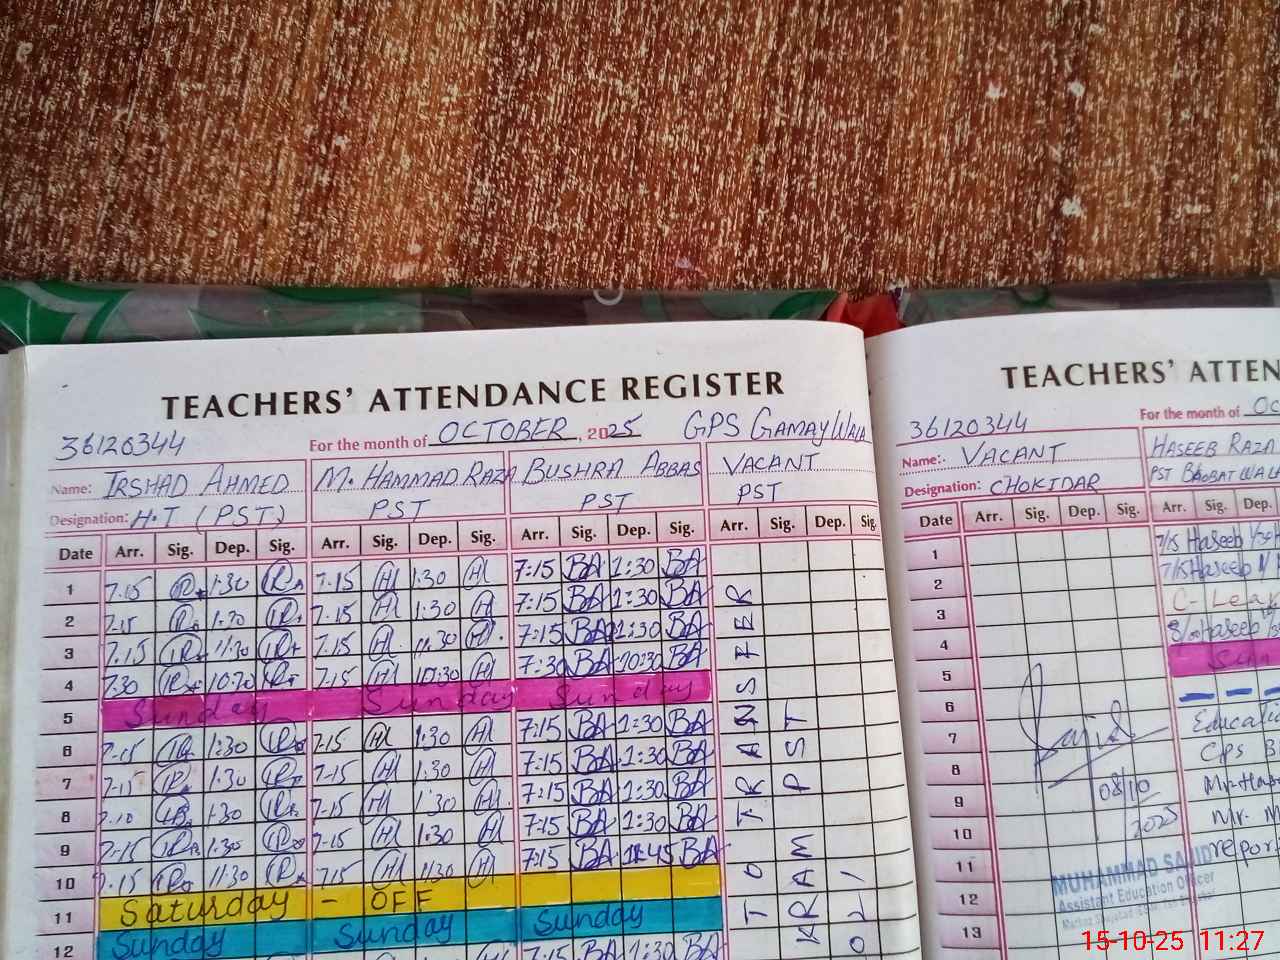 TEACHERS' ATTENDANCE REGISTER
36120344 For the month of OCTOBER, 2025 GPS GAMAY WALA
Name: IRSHAD AHMED M. HAMMAD RAZA BUSHRA ABBAS VACANT
Designation: H.T (PST) PST PST PST
Date Arr. Sig. Dep. Sig. Arr. Sig. Dep. Sig. Arr. Sig. Dep. Sig. Arr. Sig. Dep. Sig.
1 7.15 1:30 7.15 1:30 7:15 BA 1:30 BA
2 7.15 1:30 7.15 1:30 7:15 BA 1:30 BA
3 7.15 11:30 7.15 11.30 7:15 BA 11:30 BA
4 7.30 10:30 7.15 10:30 7:30 BA 10:30 BA
5 Sunday Sunday Sunday
6 7.15 1:30 7.15 1:30 7:15 BA 1:30 BA
7 7.15 1:30 7.15 1:30 7:15 BA 1:30 BA
8 1:30 7.15 1:30 7:15 BA 1:30 BA
9 7.15 1:30 7.15 1:30 7:15 BA 1:30 BA
10 7.15 11:30 7.15 11:30 7:15 BA BA
11 Saturday - OFF
12 Sunday Sunday Sunday
TRANSFER TO
IKRAM PST
TEACHERS' ATTEN
36120344 For the month of OC
Name:- VACANT HASEEB RAZA
Designation: CHOKIDAR PST
Date Arr. Sig. Dep. Sig. Arr. Sig. Dep.
1 7/15 Haseeb
2 7/15 Haseeb
3 C- Leav
4 Haseeb
5 Sun
6
7 Educati
8
9
10 Mr. M
11 report
12
13
08/10
2025
MUHAMMAD SAJID
Assistant Education Officer
15-10-25 11:27